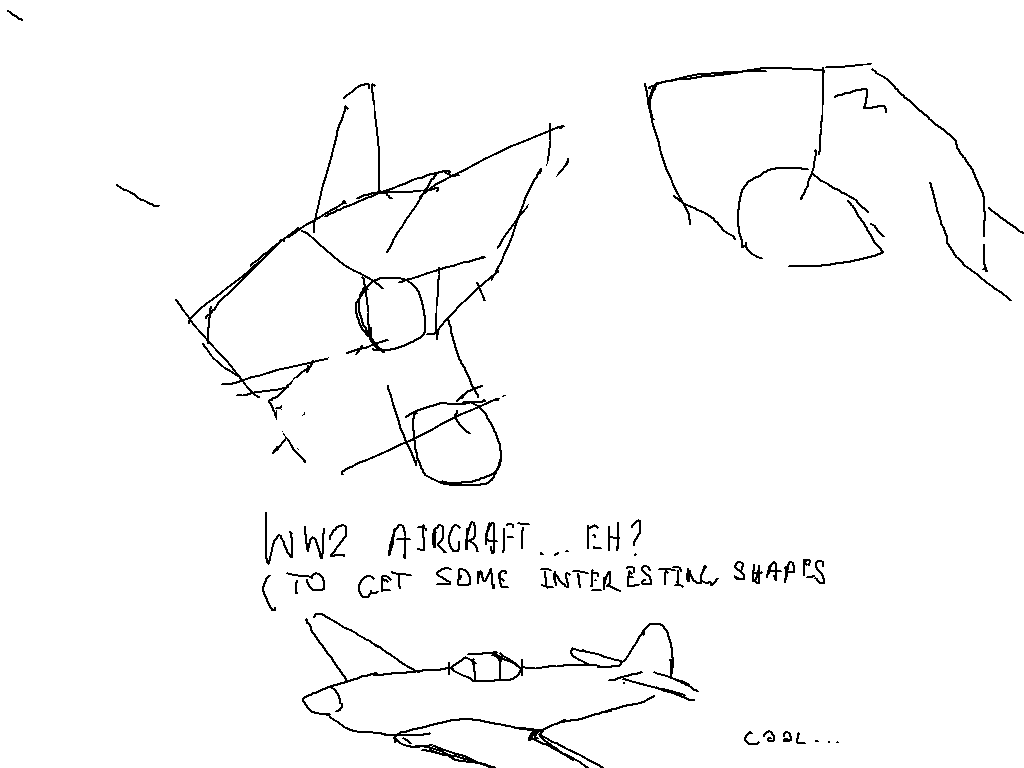 WW2 AIRCRAFT... EH?
(TO GET SOME INTERESTING SHAPES
COOL...